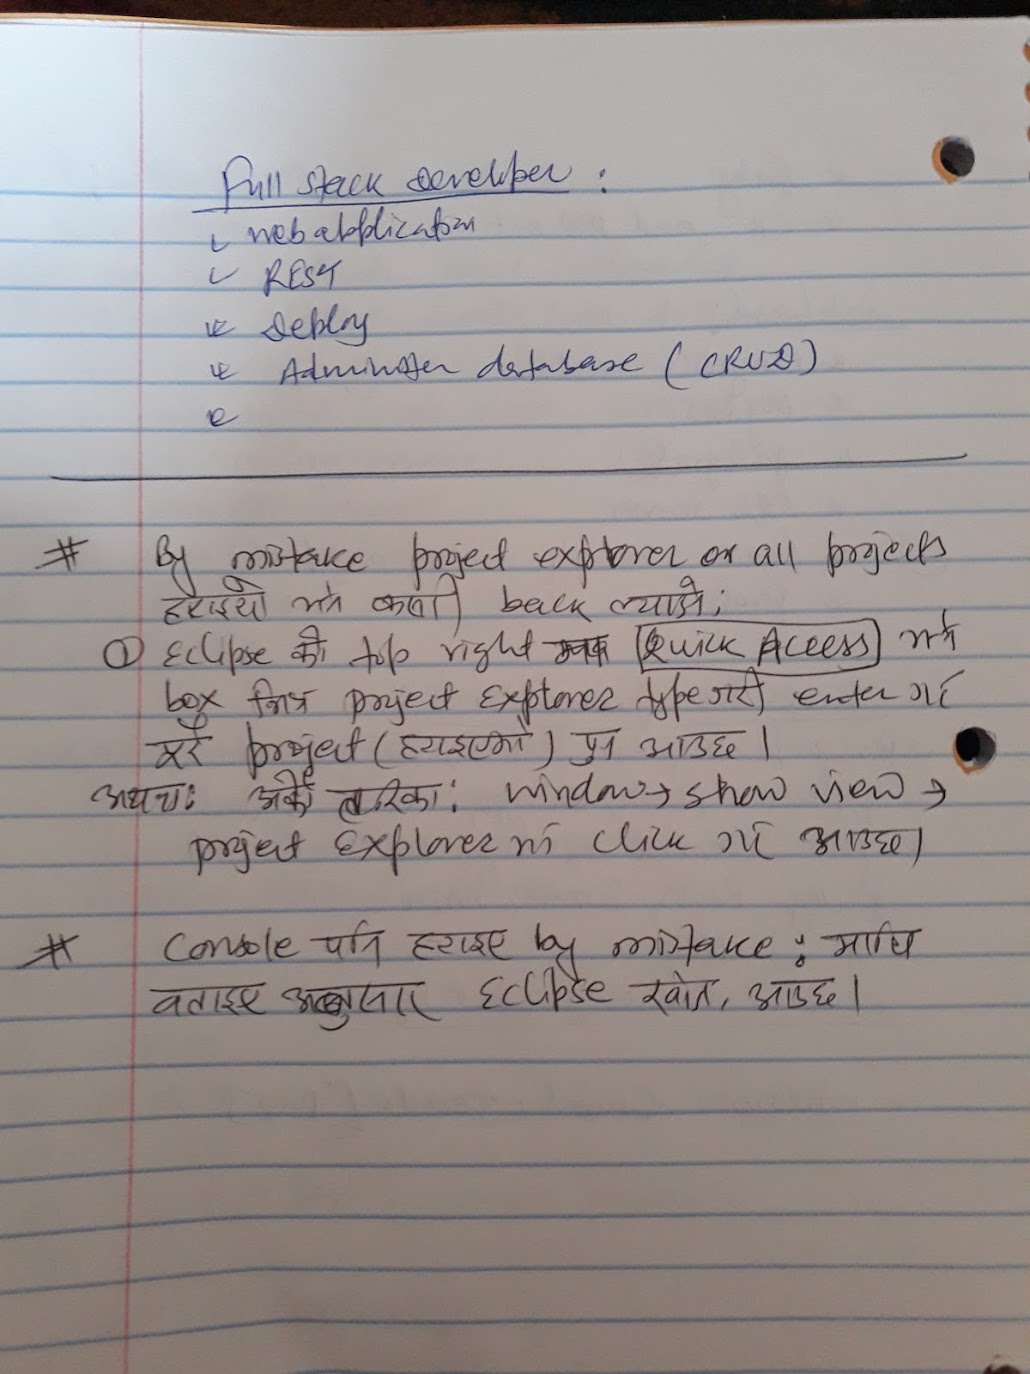 Full stack Developer :
web application
REST
Deploy
Administer database (CRUD)
# By mistake project explorer or all projects
हराइयो भने कसरी back ल्याउने;
① Eclipse को top right Quick Access भन्ने
box भित्र project Explorer type गरी enter गर्दा
सबै project (हराइएको) पुन आउछ।
अथवाः अर्को तरिकाः window → show view →
project Explorer मा click गर्दा आउछ।
# Console पनि हराइए by mistake : माथि
बताइए अनुसार Eclipse खोज, आउछ।